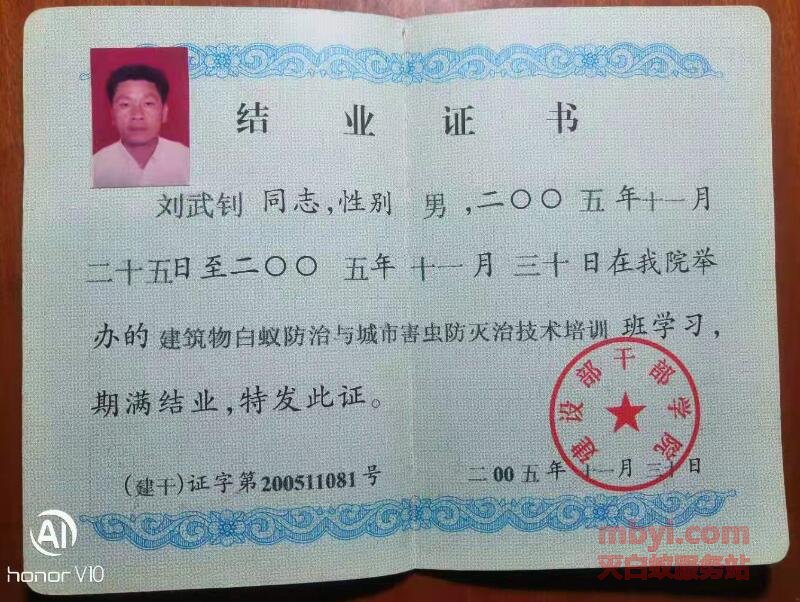 结业证书
刘武钊 同志，性别 男，二〇〇五年十一月
二十五日至二〇〇五年十一月三十日在我院举
办的 建筑物白蚁防治与城市害虫防灭治技术培训 班学习，
期满结业，特发此证。
建设部干部学院
(建干)证字第200511081号
二00五年十一月三十日
AI
honor V10
mbyi.com
灭白蚁服务站